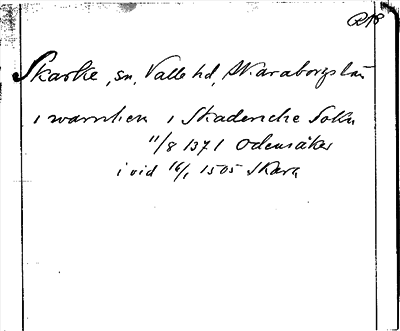 R18
Skarke, sn, Valle hd, Skaraborgs län
i warnhem i Skadericke Sokn
11/8 1371 Odensåker
i vid 16/1 1505 Skara